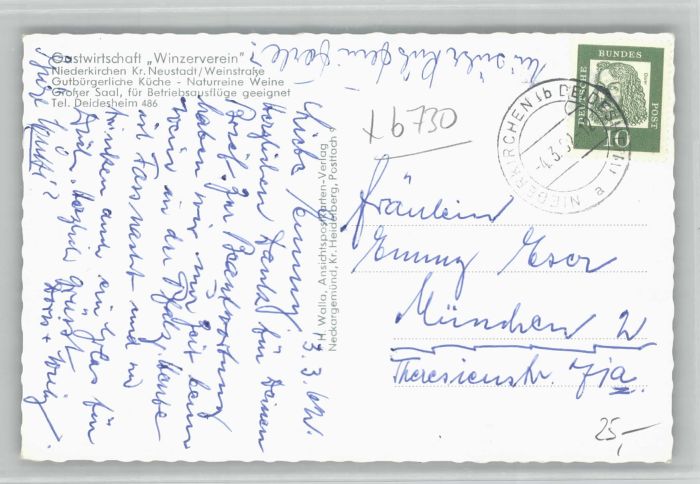 Gastwirtschaft „Winzerverein"
Niederkirchen Kr. Neustadt/Weinstraße
Gutbürgerliche Küche - Naturreine Weine
Großer Saal, für Betriebsausflüge geeignet
Tel. Deidesheim 486
Liebe Emmy! 3.3.
herzlichen Dank für Deinen
Brief. Zur Beantwortung
haben wir nur Zeit beim
Wein in der Pfalz. Heute
ist Fastnacht und wir
trinken auch ein Glas für
Dich. Herzliche Grüße
H. Walla, Ansichtspostkarten-Verlag
Neckargemünd, Kr. Heidelberg, Postfach 9
+ 6730
NIEDERKIRCHEN üb DEIDESHEIM
-4.3.6
a
DEUTSCHE BUNDESPOST
Dürer
10
Fräulein
Emmy Eser
München 2
Theresienstr. 71a
25,-